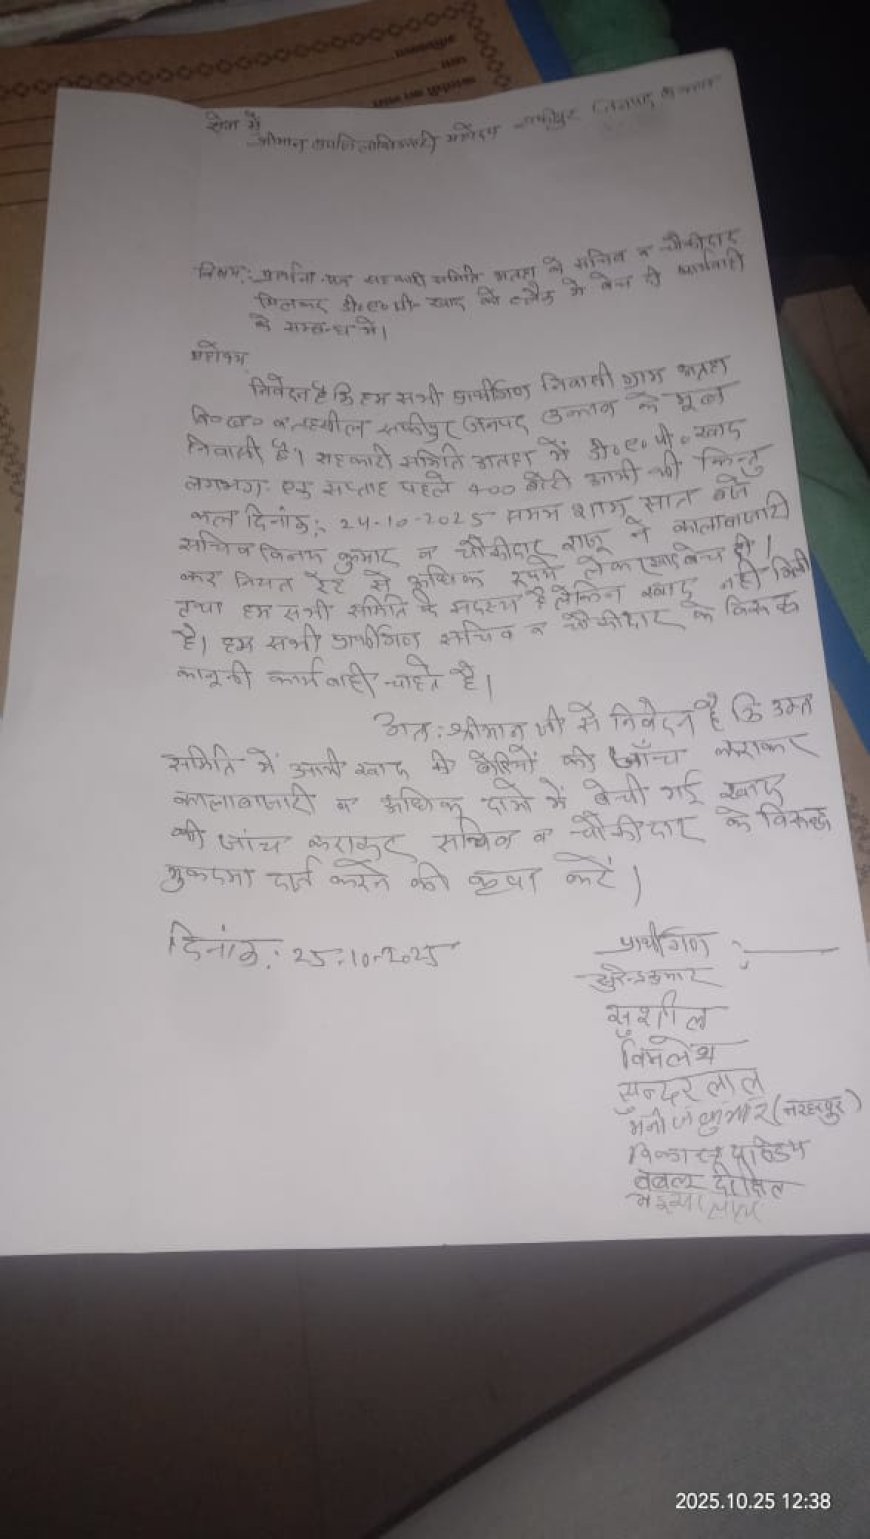 सेवा में
श्रीमान उपजिलाधिकारी महोदय सफीपुर जनपद उन्नाव
विषय:- प्रार्थना पत्र सहकारी समिति अतहा के सचिव व चौकीदार
मिलकर डी०ए०पी० खाद को ब्लैक में बेच दी कार्यवाही
के सम्बन्ध में।
महोदय
निवेदन है कि हम सभी प्रार्थीगण निवासी ग्राम अतहा
वि०ख० व तहसील सफीपुर जनपद उन्नाव के मूल
निवासी है। सहकारी समिति अतहा में डी०ए०पी० खाद
लगभग एक सप्ताह पहले 400 बोरी आयी थी किन्तु
कल दिनांक: 24-10-2025 समय शाम सात बजे
सचिव विनय कुमार व चौकीदार राजू ने कालाबाजारी
कर नियत रेट से अधिक रुपये लेकर खाद बेच दी।
तथा हम सभी समिति के सदस्य है लेकिन खाद नही मिली
है। हम सभी प्रार्थीगण सचिव व चौकीदार के विरुद्ध
कानूनी कार्यवाही चाहते है।
अत: श्रीमान जी से निवेदन है कि उक्त
समिति में आयी खाद की बोरियों की जाँच कराकर
कालाबाजारी व अधिक दामो में बेची गई खाद
की जांच कराकर सचिव व चौकीदार के विरुद्ध
मुकदमा दर्ज करने की कृपा करें।
दिनांक: 25-10-2025
प्रार्थीगण :-
सुरेन्द्र कुमार
सुशील
विमलेश
सुन्दर लाल
मनोज कुमार (नरहरपुर)
पाण्डेय
बबलू दीक्षित
लाल
2025.10.25 12:38